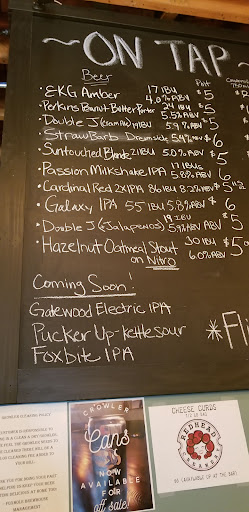 ~ON TAP~
Beer
Pint
• EKG Amber 17 IBU 4.0% ABV $5
• Perkins Peanut Butter Porter 24 IBU 5.5% ABV $5
• Double J (Cream Ale) 19 IBU 5.9% ABV $5
• StrawBarb Dreamsicle 5.4% ABV $6
• Suntouched Blonde 21 IBU 5.0% ABV $5
• Passion Milkshake IPA 17 IBUs 5.8% ABV $6
• Cardinal Red 2X IPA 86 IBU 8.29% ABV $5
• Galaxy IPA 55 IBU 5.8% ABV $6
• Double J (Jalapenos) 19 IBU 5.9% ABV $5
• Hazelnut Oatmeal Stout 30 IBU $5
on Nitro 6.0% ABV
Coming Soon!
Gatewood Electric IPA
Pucker Up-Kettle Sour
Foxbite IPA
*Fli
GROWLER CLEANING POLICY
MANAGEMENT
CROWLER
Cans
NOW
AVAILABLE
FOR
off sale!
CHEESE CURDS
REDHEAD
CREAMERY
AVAILABLE AT THE BAR!